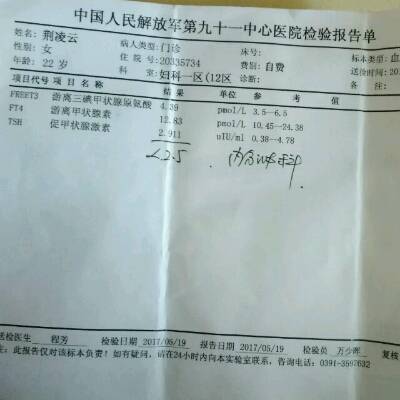 中国人民解放军第九十一中心医院检验报告单
姓名: 荆凌云 病人类型: 门诊 床号: 标本类型: 血
性别: 女 住 院 号: 20335734 费 别: 自费 送检时间: 201
年龄: 22 岁 科 室: 妇科一区(12区 诊断: 备 注:
项目代号 项 目 名 称 结 果 单 位 参 考 值
FREET3 游离三碘甲状腺原氨酸 4.39 pmol/L 3.5--6.5
FT4 游离甲状腺素 12.83 pmol/L 10.45--24.38
TSH 促甲状腺激素 2.911 uIU/ml 0.38--4.78
<2.5 内分泌科
送检医生 程芳 检验日期 2017/05/19 报告日期 2017/05/19 检验员 万少晖 复核
注: 此报告仅对该标本负责! 如有疑问, 请在24小时内向本实验室联系, 咨询电话: 0391-3597632